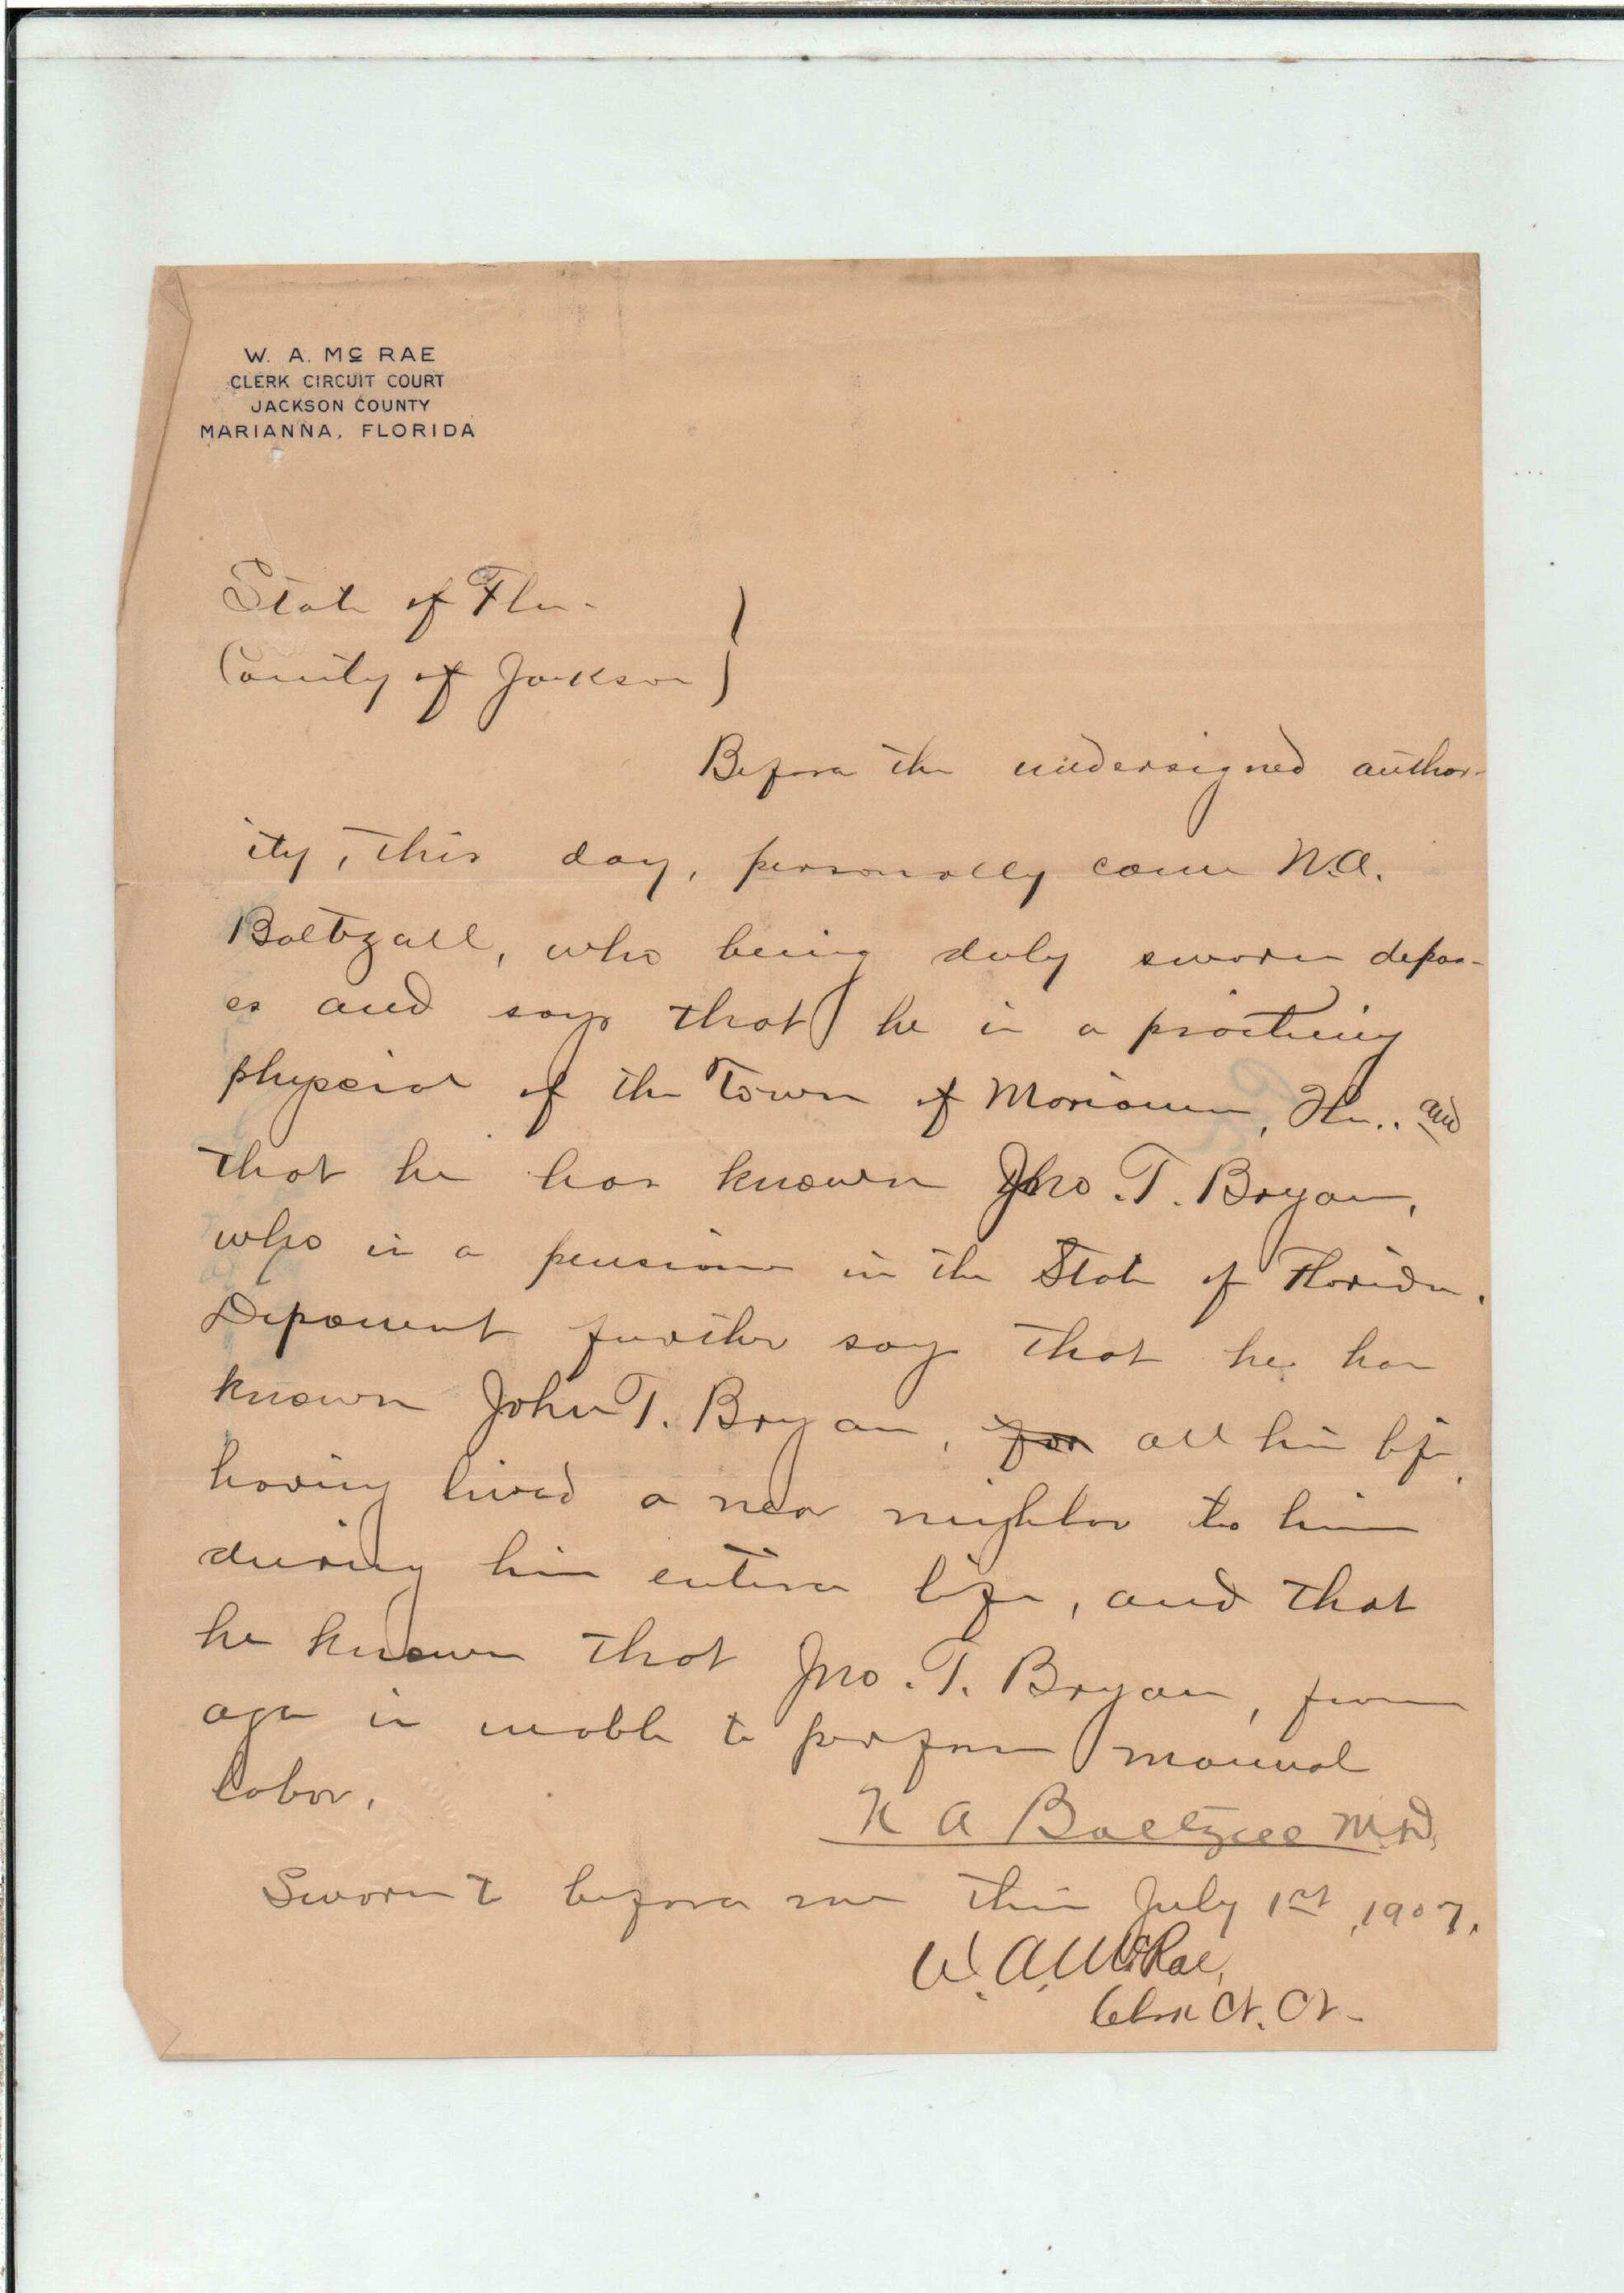 W. A. Mc RAE
CLERK CIRCUIT COURT
JACKSON COUNTY
MARIANNA, FLORIDA
State of Fla.
County of Jackson
Before the undersigned author-
ity, this day, personally came N.A.
Baltzell, who being duly sworn depos-
es and says that he is a practicing
physician of the Town of Marianna, Fla., and
that he has known Jno. T. Bryan,
who is a pensioner in the State of Florida.
Deponent further says that he has
known John T. Bryan, for all his life,
having lived a near neighbor to him
during his entire life, and that
he knows that Jno. T. Bryan, from
age is unable to perform manual
labor.
N A Baltzell M.D.
Sworn to before me this July 1st, 1907.
W. A. McRae,
Clerk Ct. Ct.